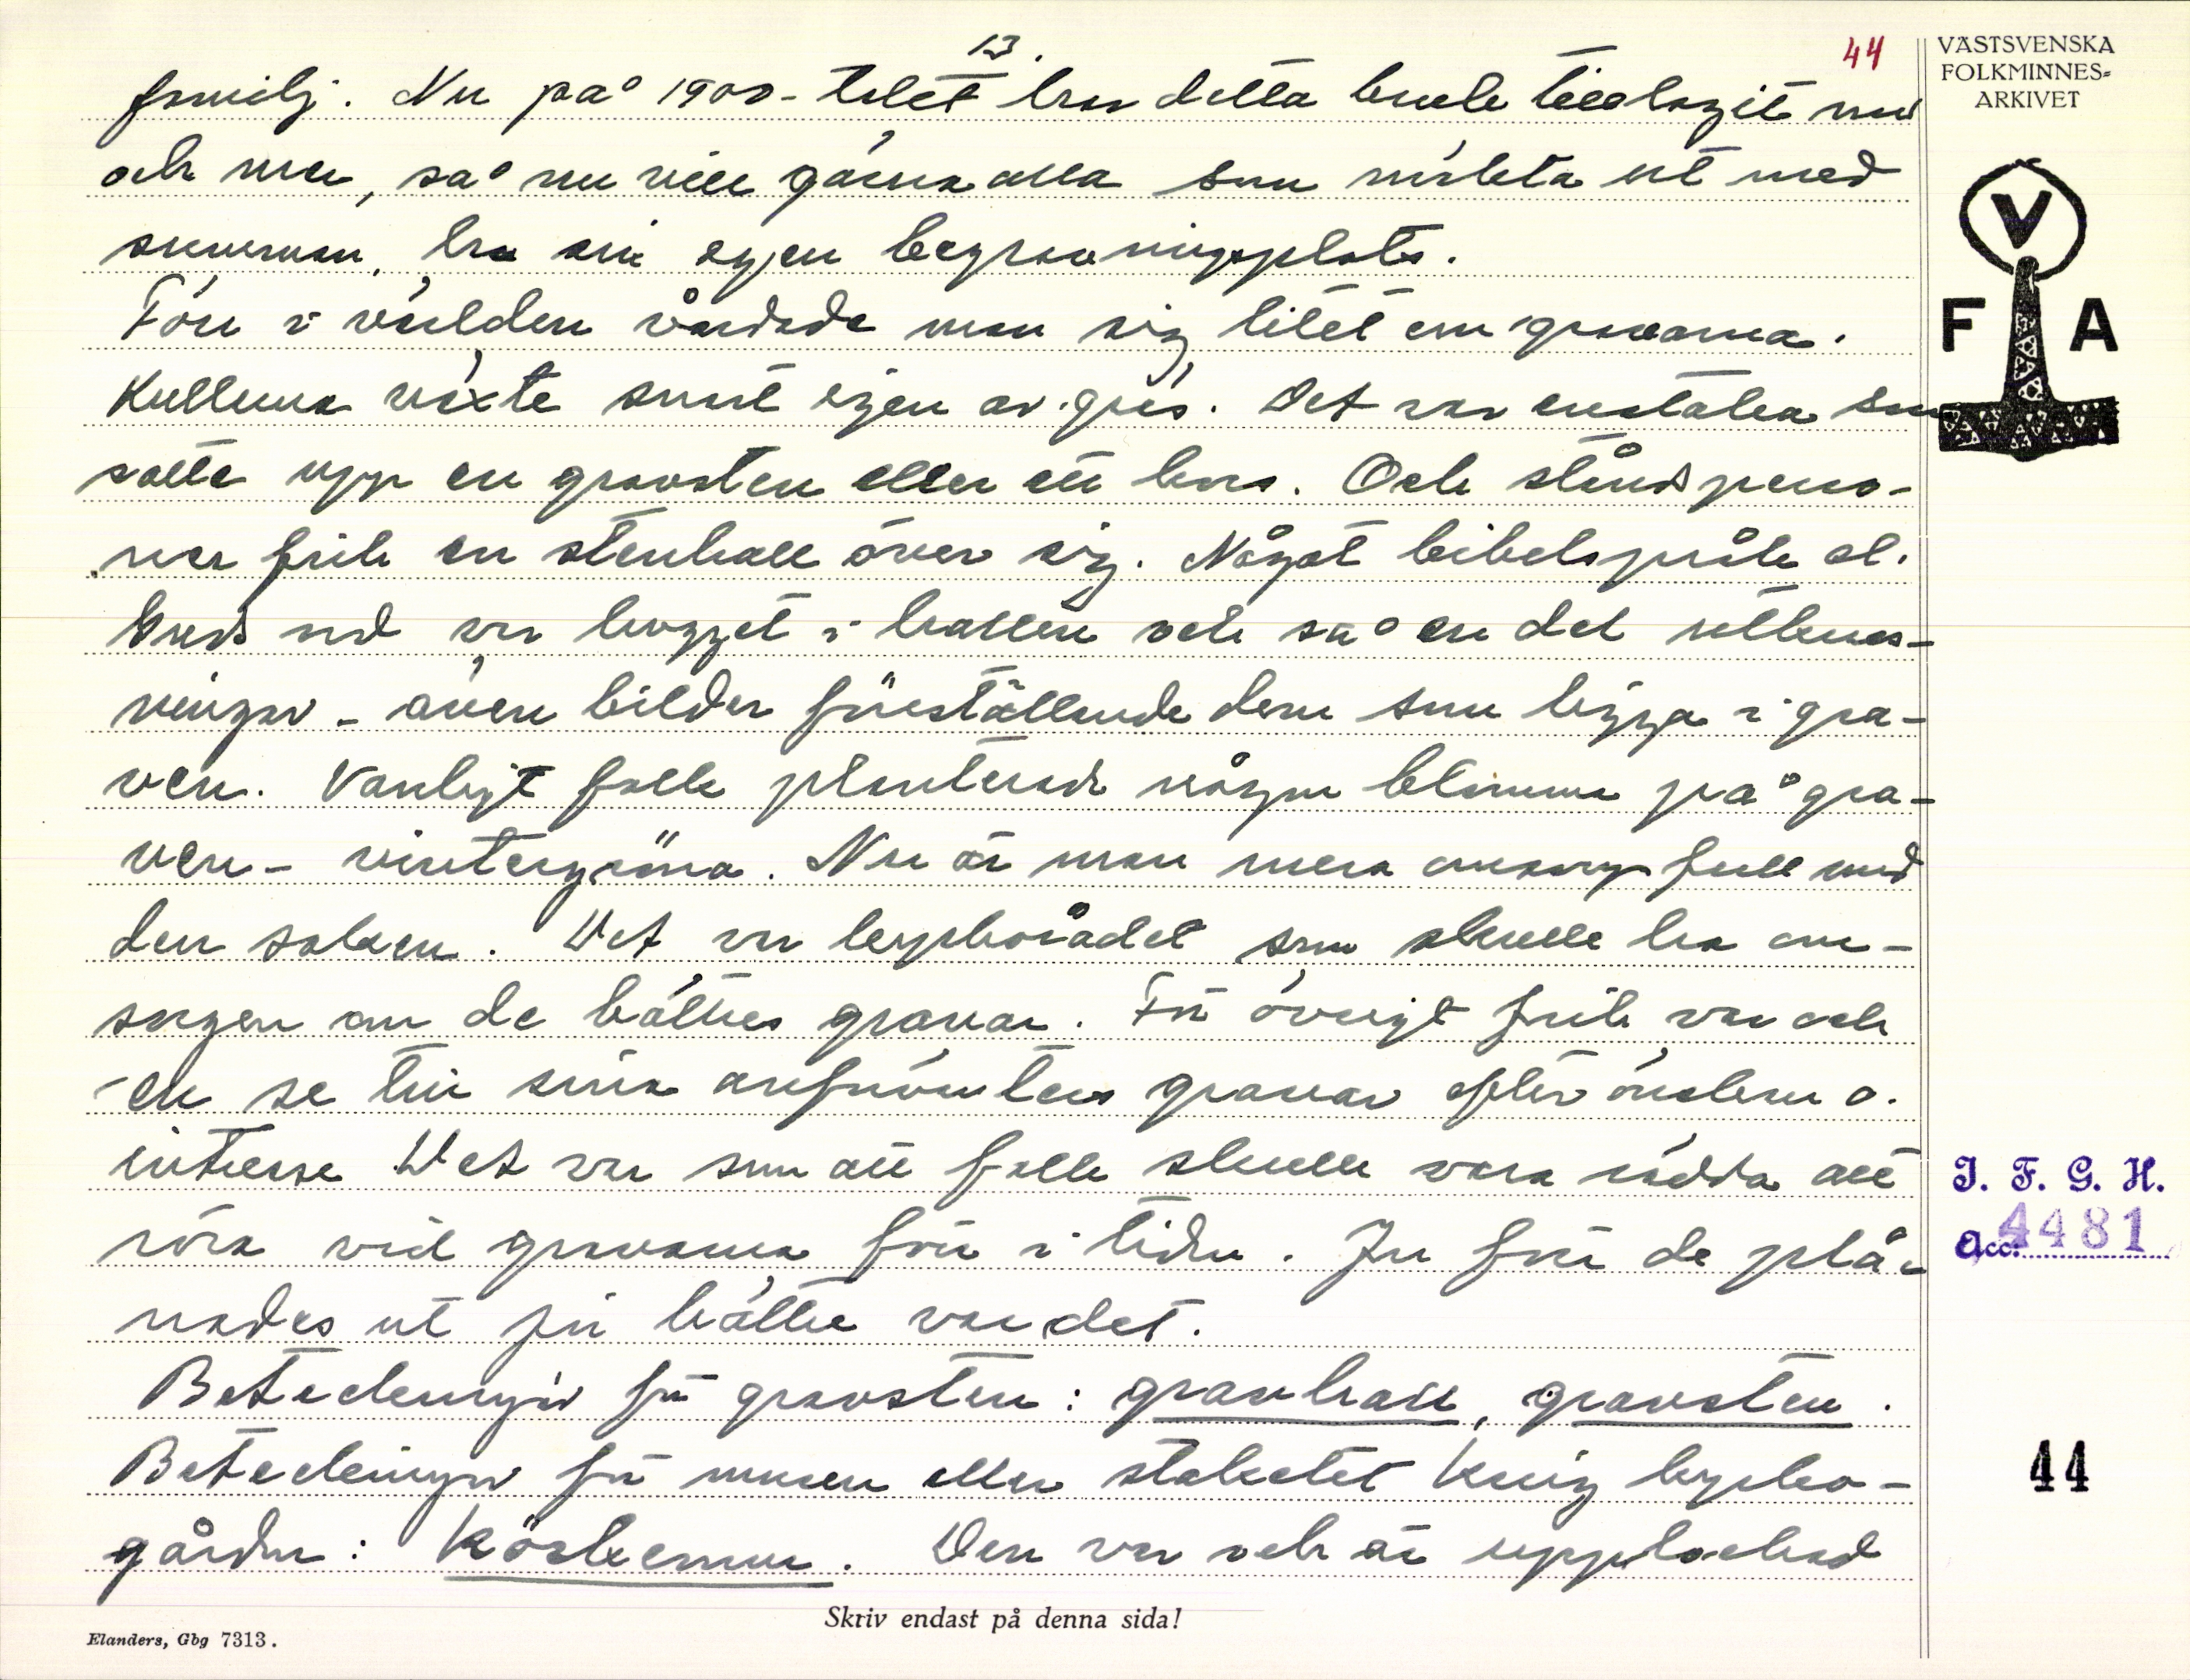 13.
44
VÄSTSVENSKA
FOLKMINNES-
ARKIVET
familj. Nu på 1900-talet har detta bruk tilltagit mer
och mer, så nu vill gärna alla som mäkta ut med
summan, ha sin egen begravningsplats.
Förr i världen vårdade man sig litet om gravarna.
Kullarna växte snart igen av gräs. Det var enstaka som
satte upp en gravsten eller ett kors. Och ståndsperso-
ner fick en stenhall över sig. Något bibelspråk el.
Guds ord var hugget i hallen och så en del utkrus-
ningar - även bilder föreställande dem som ligga i gra-
ven. Vanligt folk planterade någon blomma på gra-
ven - vintergröna. Nu är man mera omsorgsfull med
den saken. Det var kyrkorådet som skulle ha om-
sorgen om de bättres gravar. För övrigt fick var och
en se till sina anförvanters gravar efter önskan o.
intresse Det var som att folk skulle vara rädda att
röra vid gravarna förr i tiden. Ju förr de plå-
nades ut ju bättre var det.
Beteckningar för gravsten: gravhall, gravsten.
Beteckningar för muren eller staketet kring kyrko-
gården: Körkemur. Den var och är upplockad
V
F A
I. F. G. H.
Acc. 4481
44
Skriv endast på denna sida!
Elanders, Gbg 7313.